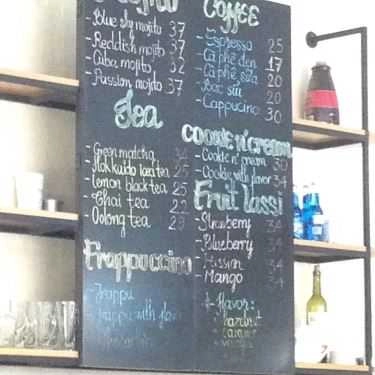 Mojito
- Blue sky mojito 37
- Reddish mojito 37
- Cuba mojito 32
- Passion mojito 37
Tea
- Green matcha 34
- Hokkaido icea tea 25
- Lemon black tea 25
- Thai tea
- Oolong tea
Frappuccino
- Frappu
- Frappu with flavor
Coffee
- Espresso 25
- Cà phê đen 17
- Cà phê sữa 20
- Bạc sỉu
- Cappucino 30
COOKIE N' CREAM
- Cookie n' cream 30
- Cookie with flavor 34
Fruit Lassi
- Strawberry 34
- Blueberry 34
- Passion 34
- Mango 34
+ flavor: